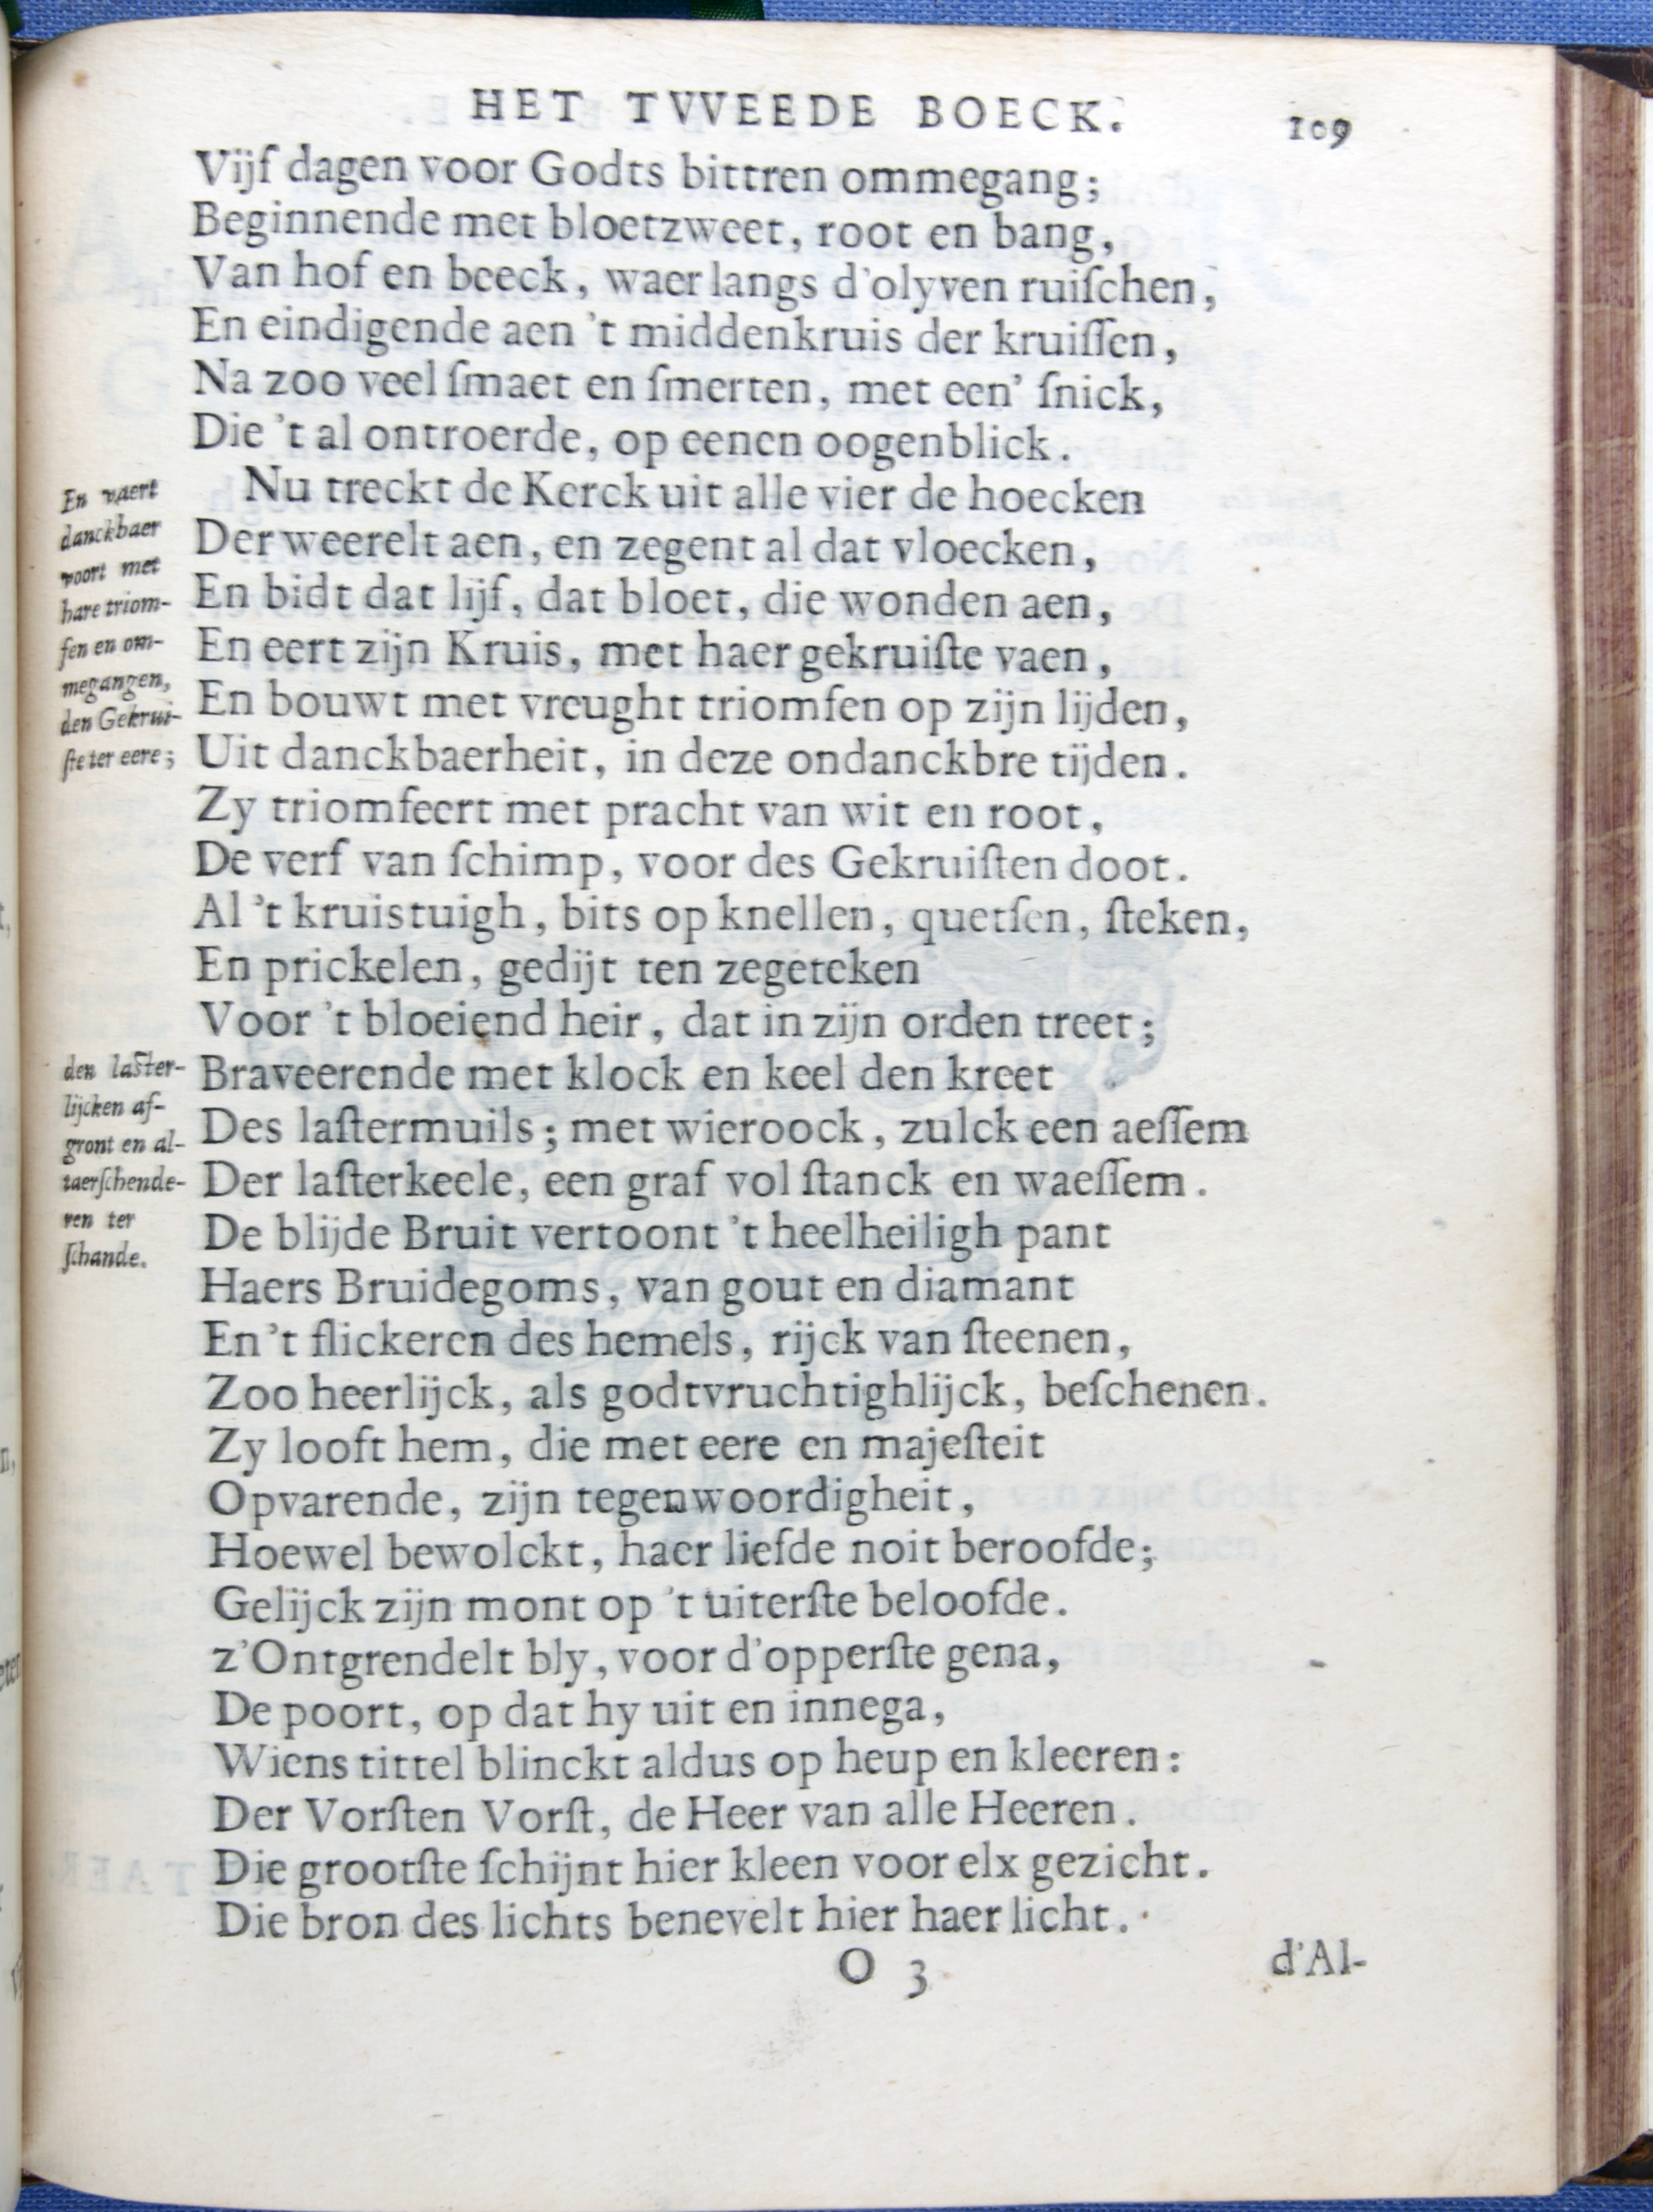 HET TVVEEDE BOECK. 109
Vijf dagen voor Godts bittren ommegang;
Beginnende met bloetzweet, root en bang,
Van hof en beeck, waer langs d'olyven ruiſchen,
En eindigende aen 't middenkruis der kruiſſen,
Na zoo veel ſmaet en ſmerten, met een' ſnick,
Die 't al ontroerde, op eenen oogenblick.
Nu treckt de Kerck uit alle vier de hoecken
Der weerelt aen, en zegent al dat vloecken,
En bidt dat lijf, dat bloet, die wonden aen,
En eert zijn Kruis, met haer gekruiſte vaen,
En bouwt met vreught triomfen op zijn lijden,
Uit danckbaerheit, in deze ondanckbre tijden.
Zy triomfeert met pracht van wit en root,
De verf van ſchimp, voor des Gekruiſten doot.
Al 't kruistuigh, bits op knellen, quetſen, ſteken,
En prickelen, gedijt ten zegeteken
Voor 't bloeiend heir, dat in zijn orden treet;
Braveerende met klock en keel den kreet
Des laſtermuils; met wieroock, zulck een aeſſem
Der laſterkeele, een graf vol ſtanck en waeſſem.
De blijde Bruit vertoont 't heelheiligh pant
Haers Bruidegoms, van gout en diamant
En 't flickeren des hemels, rijck van ſteenen,
Zoo heerlijck, als godtvruchtighlijck, beſchenen.
Zy looft hem, die met eere en majeſteit
Opvarende, zijn tegenwoordigheit,
Hoewel bewolckt, haer liefde noit beroofde;
Gelijck zijn mont op 't uiterſte beloofde.
z'Ontgrendelt bly, voor d'opperſte gena,
De poort, op dat hy uit en innega,
Wiens tittel blinckt aldus op heup en kleeren:
Der Vorſten Vorſt, de Heer van alle Heeren.
Die grootſte ſchijnt hier kleen voor elx gezicht.
Die bron des lichts benevelt hier haer licht.
O 3 d'Al-
En vaert
danckbaer
voort met
hare triom-
fen en om-
megangen,
den Gekrui-
ſte ter eere;
den laſter-
lijcken af-
gront en al-
taerſchende-
ren ter
ſchande.